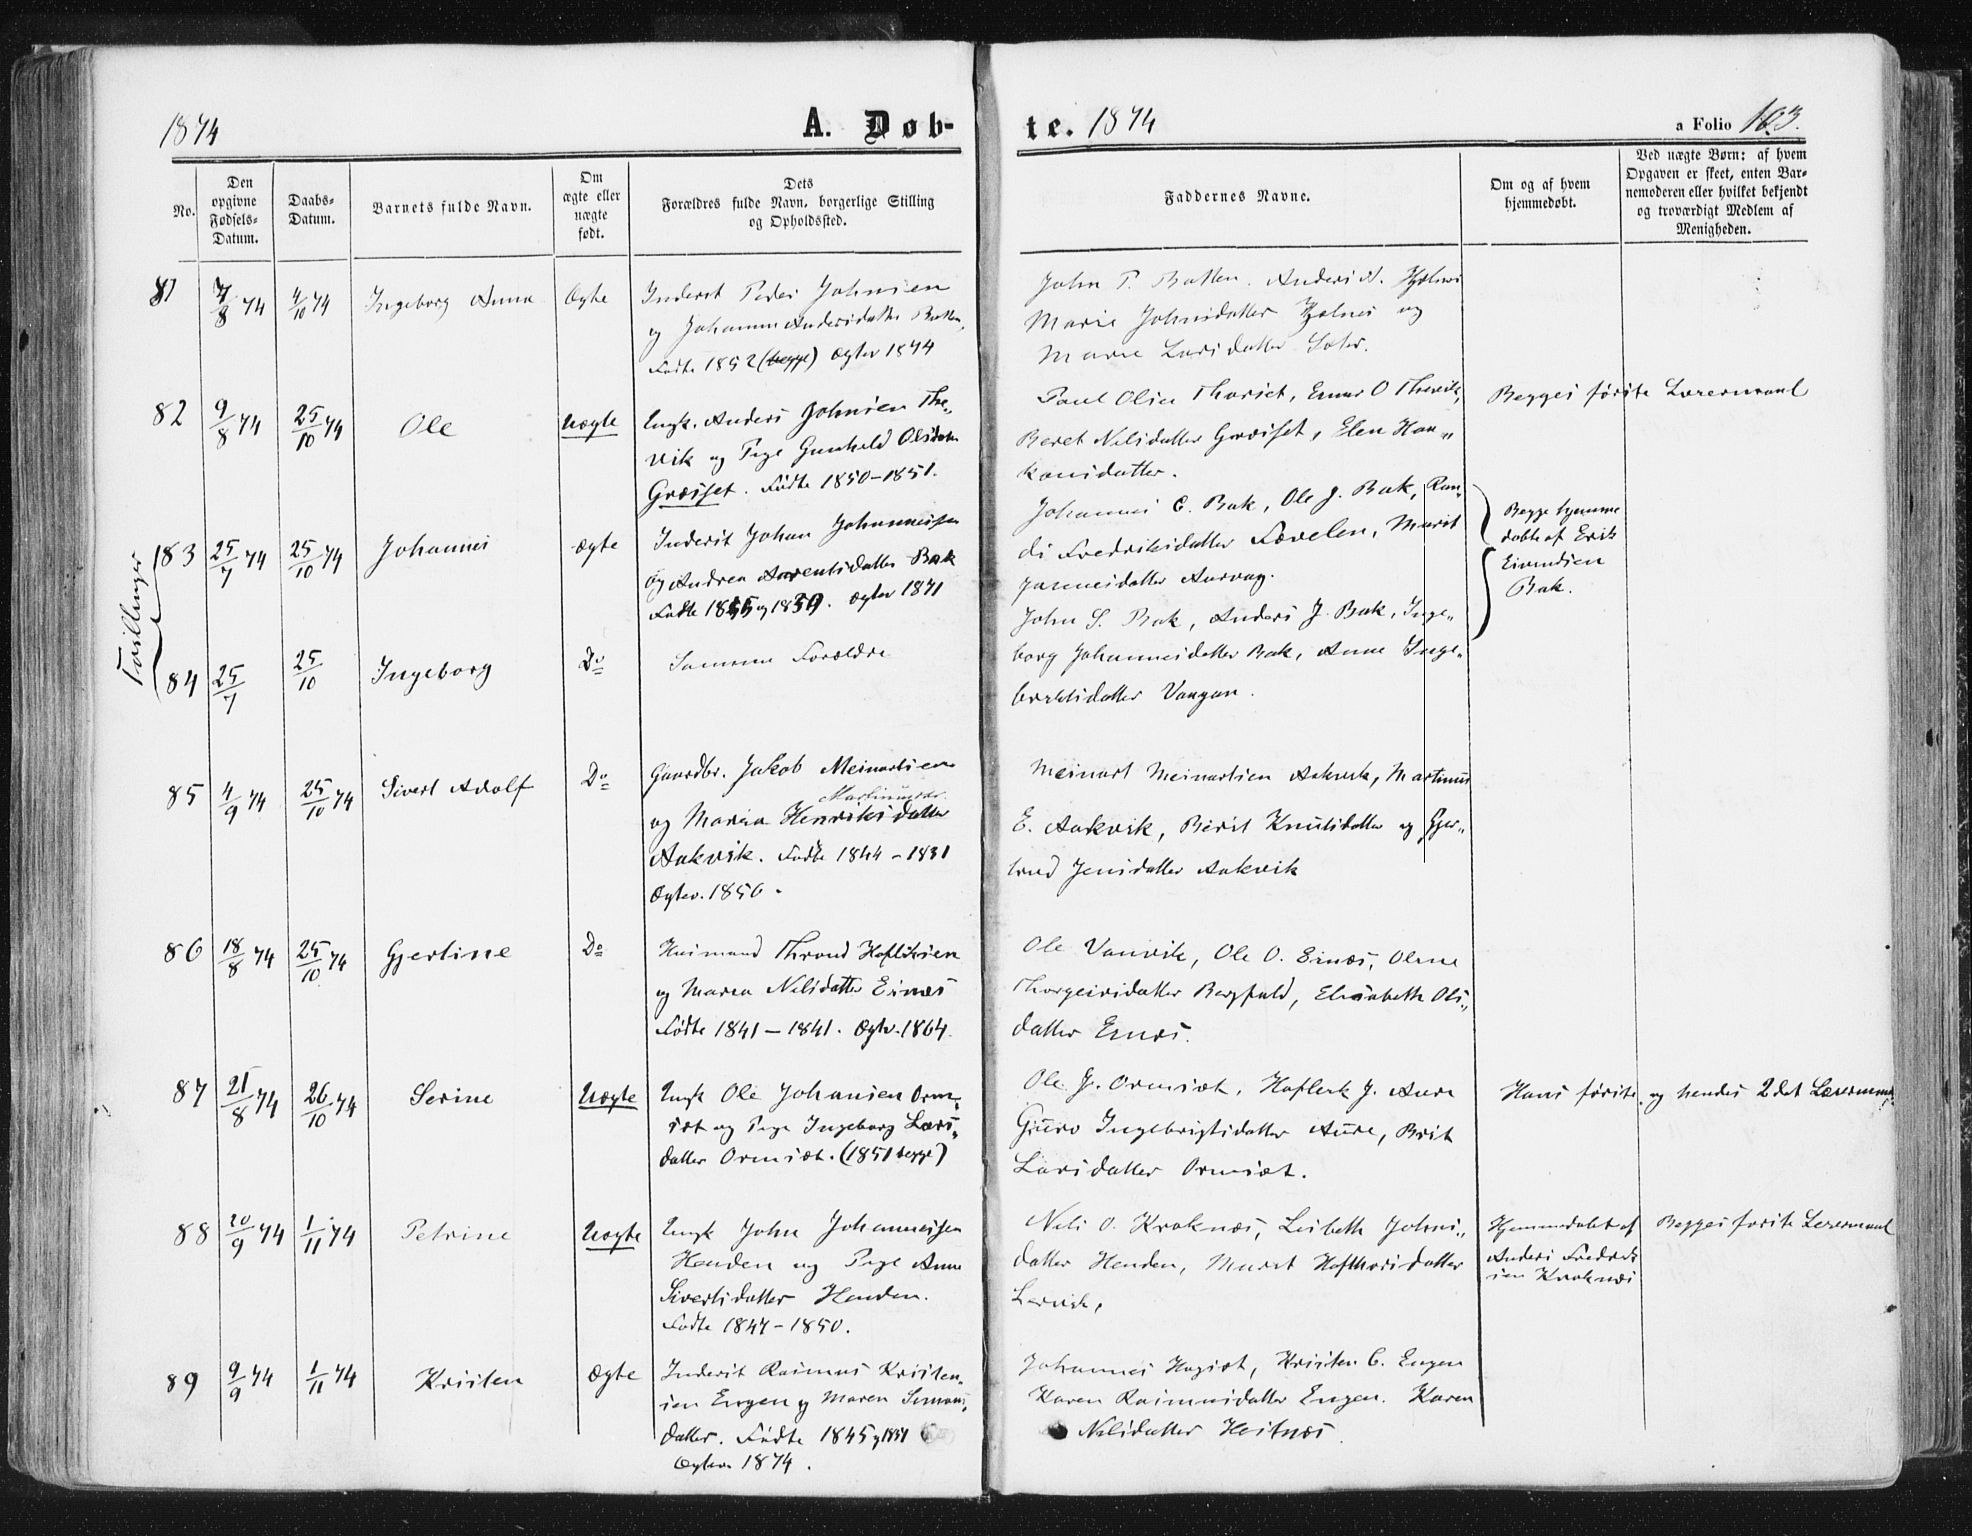 1874
A. Døb-
te. 1874
a Folio 163.
No.
Den opgivne Fødsels-Datum.
Daabs-Datum.
Barnets fulde Navn.
Om ægte eller uægte født.
Dets Forældres fulde Navn, borgerlige Stilling og Opholdssted.
Faddernes Navne.
Om og af hvem hjemmedøbt.
Ved uægte Børn: af hvem Opgaven er skeet, enten Barnemoderen eller hvilket bekjendt og troværdigt Medlem af Menigheden.
81 4/8 74 4/10 74 Ingeborg Anna Ægte
Inderst Peder Johnsen
og Johanne Andersdatter
Fødte 1852 (begge) Ægtev 1874
John P. Anders
Marie Johnsdatter og
Marie Larsdatter
82 9/8 74 25/10 74 Ole Uægte
Ungk. Anders Johnsen The-
vik og Pige Gunhild Olsdatter
Græsset. Fødte 1850-1851.
Paul Olsen O Thevik,
Beret Nilsdatter Græsset, Elen Haa-
konsdatter.
Begges første Leiermaal
Tvillinger
183 25/7 74 25/10 74 Johannes ægte
Inderst Johan Johannessen
og Andrea Arentsdatter Bak
Fødte og Ægtev 1871
Johannes C. Bak, Ole J. Bak, Ran-
di Fredriksdatter Marit
Johannesdatter
Begge hjemme
døbte af Erik
Eivendsen
Bak.
84 25/7 25/10 Ingeborg Do
Samme Forældre
John S. Bak, Anders J. Bak, Inge-
borg Johannesdatter Bak, Anne Inge-
brektsdatter Vaagan.
85 4/9 74 25/10 74 Sivert Adolf Do
Gaardbr. Jakob Meinartsen
og Maria Henriksdatter
Aakvik. Fødte 1844 - 1831
Ægtev. 1856.
Meinart Meinartsen Aakvik, Martinus
E. Aakvik, Berit Knutsdatter og Gjer-
trud Jensdatter Aakvik
86 18/8 74 25/10 74 Gjertine Do
Husmand Thrond Hafliksen
og Maren Nilsdatter Eines
Fødte 1841 - 1841. Ægtv. 1864.
Ole Vanvik, Ole O. Ernæs,
Thorgeirsdatter Elisabeth Ols-
datter Ernæs.
87 21/8 74 26/10 74 Serine Uægte
Ungk Ole Johansen Orm-
sæt og Pige Ingeborg Lars-
datter Ormsæt. (1851 begge)
Ole J. Ormsæt, Haflerk J. Aure
Guro Ingebrigtsdatter Aure, Brit
Larsdatter Ormsæt.
Hans første og hendes 2det Leiermaal
88 20/9 74 1/11 74 Petrine Uægte
Ungk John Johannessen
Henden og Pige Anne
Sivertsdatter Henden.
Fødte 1847 - 1850.
Nils O. Kroknæs, Lisbeth Johns-
datter Henden, Marit Hafthorsdatter
Lervik,
Hjemmedøbt af
Anders Fredrik
sen Kroknæs
Begges første Leiermaal
89 9/9 74 1/11 74 Kristen Ægte
Inderst Rasmus Kristen-
sen Engen og Maren Simons-
datter. Fødte 1845 og 1851
Ægtev. 1874.
Johannes Kristen C. Engen
Karen Rasmusdatter Engen. Karen
Nilsdatter